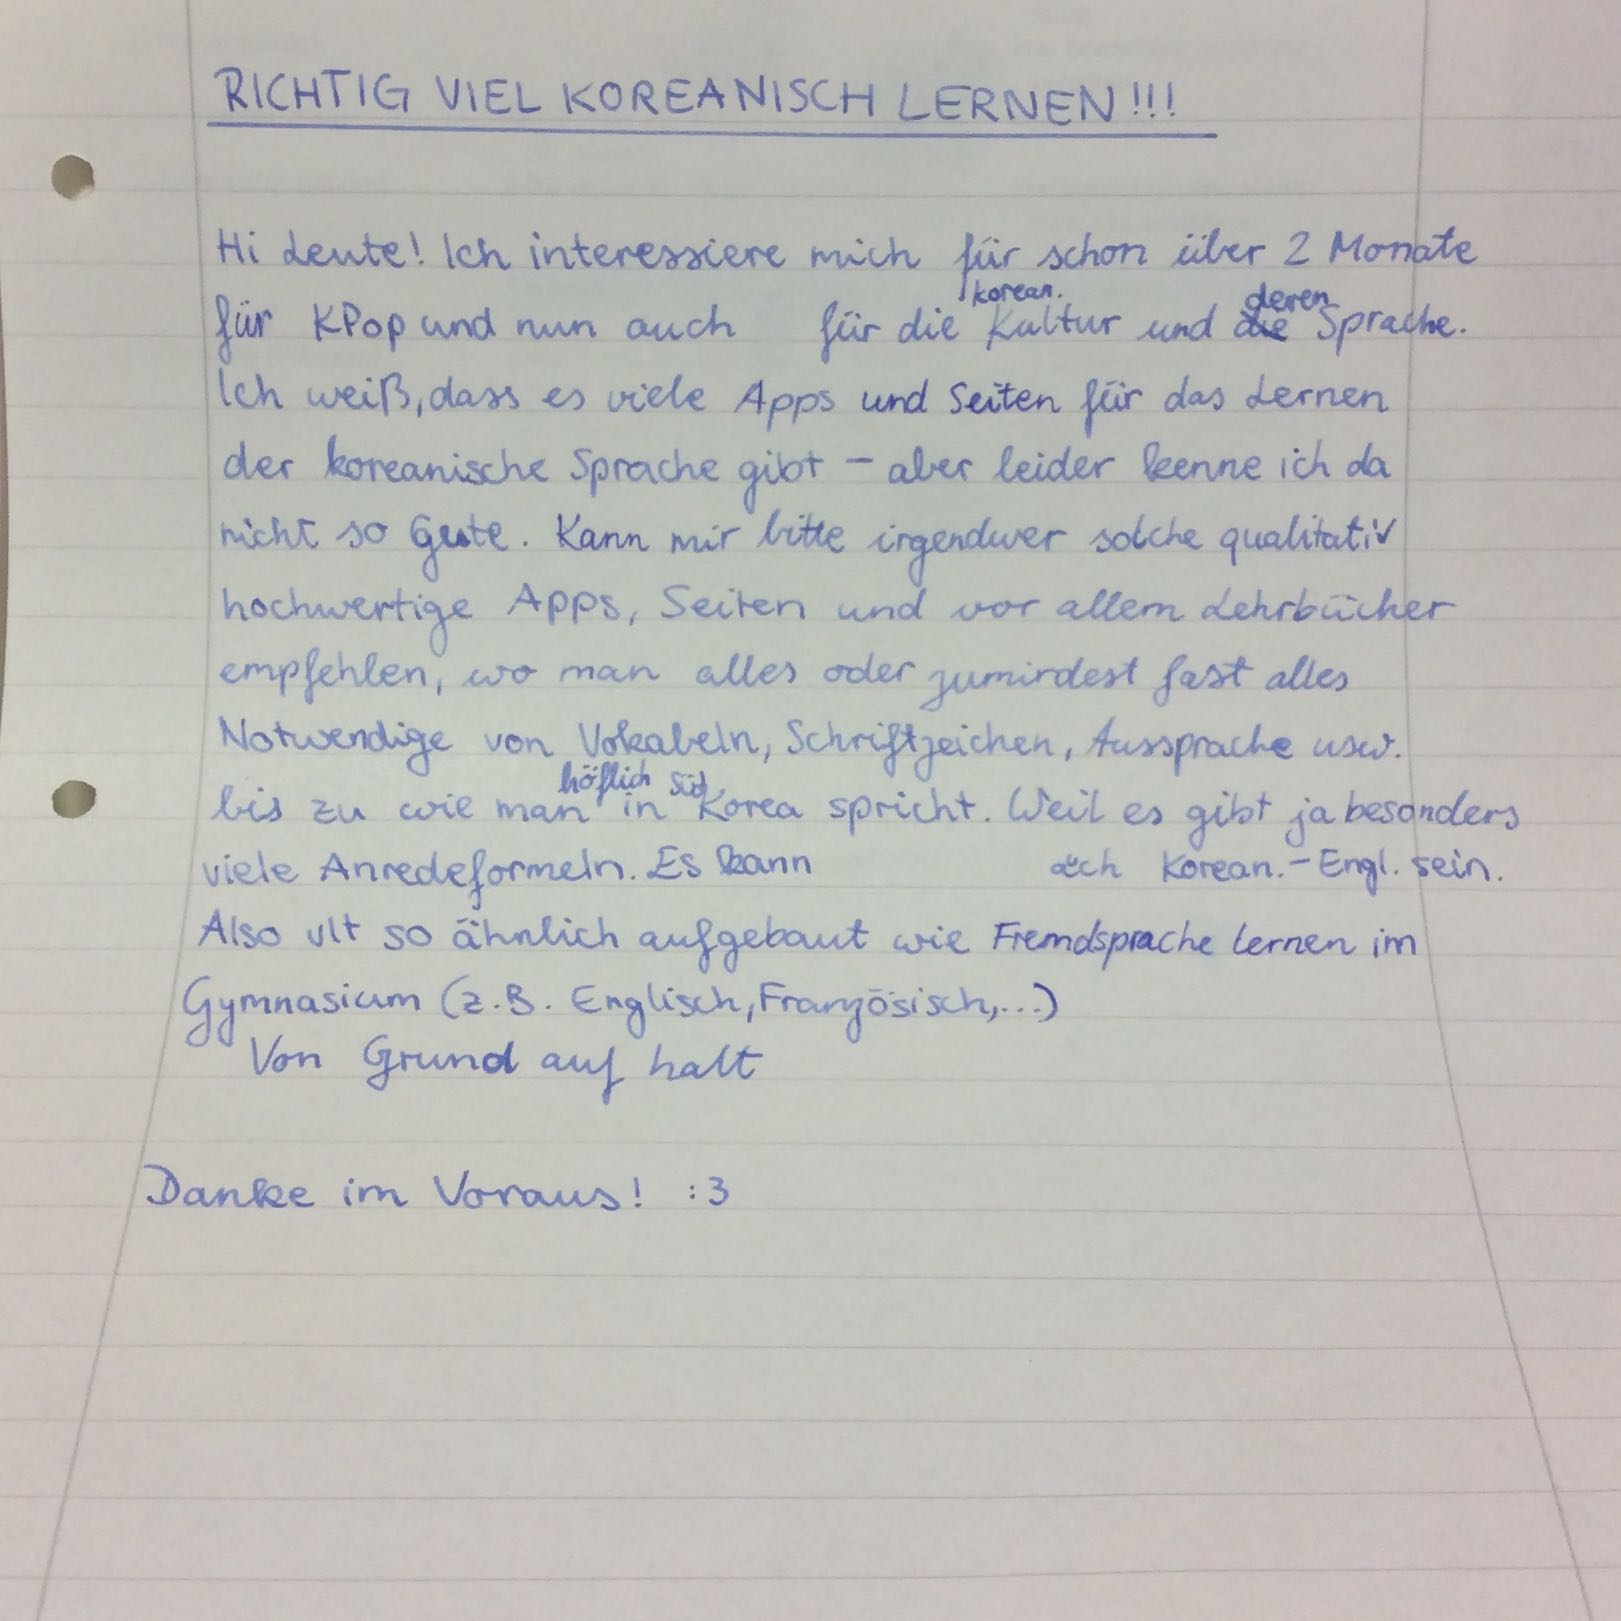 RICHTIG VIEL KOREANISCH LERNEN!!!
Hi Leute! Ich interessiere mich für schon über 2 Monate
für KPop und nun auch für die korean. Kultur und deren Sprache.
Ich weiß, dass es viele Apps und Seiten für das Lernen
der koreanische Sprache gibt – aber leider kenne ich da
nicht so Gute. Kann mir bitte irgendwer solche qualitativ
hochwertige Apps, Seiten und vor allem Lehrbücher
empfehlen, wo man alles oder zumindest fast alles
Notwendige von Vokabeln, Schriftzeichen, Aussprache usw.
bis zu wie man höflich in Südkorea spricht. Weil es gibt ja besonders
viele Anredeformeln. Es kann Korean.-Engl. sein.
Also vlt so ähnlich aufgebaut wie Fremdsprache lernen im
Gymnasium (z.B. Englisch, Französisch,...)
Von Grund auf halt
Danke im Voraus! :3